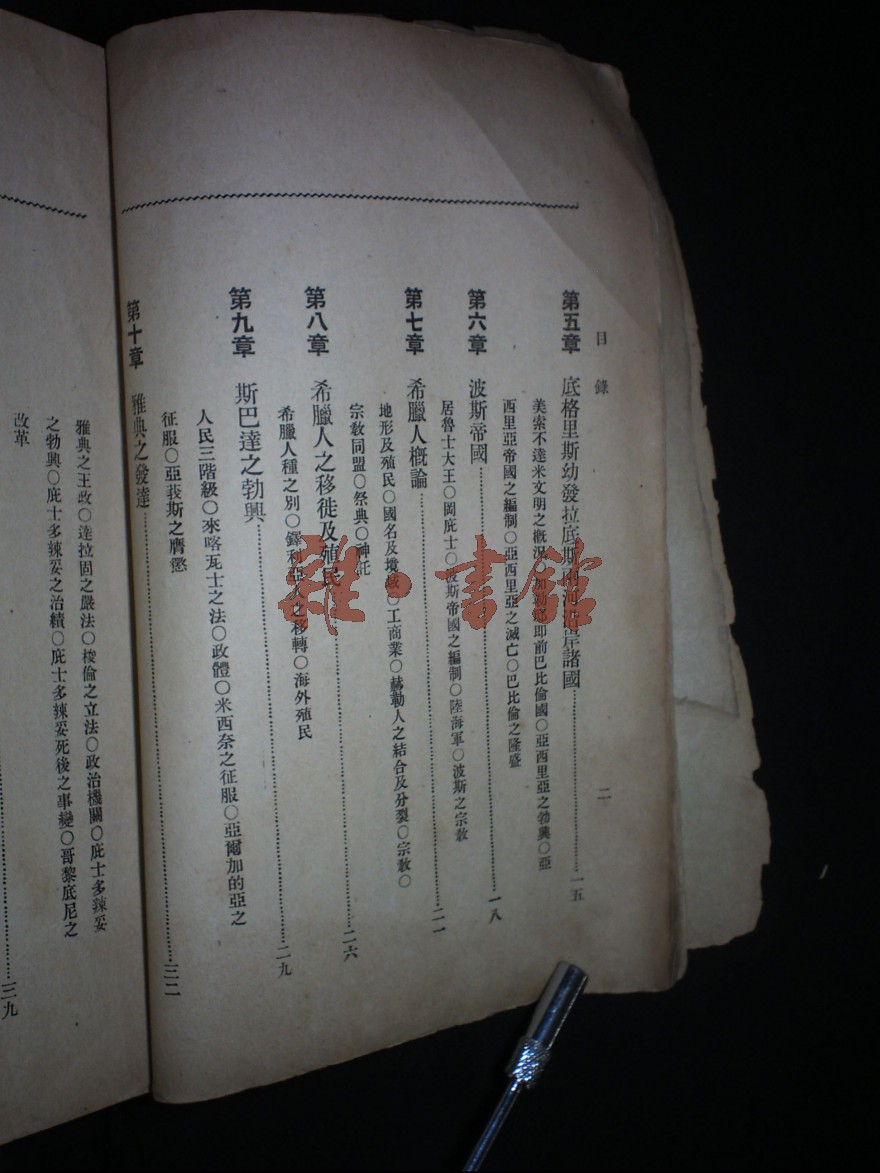 目錄 二
第五章 底格里斯幼發拉底斯兩河沿岸諸國……一五
美索不達米文明之概況○加勒底即前巴比倫國○亞西里亞之勃興○亞
西里亞帝國之編制○亞西里亞之滅亡○巴比倫之隆盛
第六章 波斯帝國……一八
居魯士大王○岡庇士○波斯帝國之編制○陸海軍○波斯之宗教
第七章 希臘人概論……二一
地形及殖民○國名及境域○工商業○赫勒人之結合及分裂○宗教○
宗教同盟○祭典○神託
第八章 希臘人之移徙及殖民……二六
希臘人種之別○鐸利亞人之移轉○海外殖民
第九章 斯巴達之勃興……二九
人民三階級○來喀瓦士之法○政體○米西奈之征服○亞爾加的亞之
征服○亞莪斯之膺懲
第十章 雅典之發達……三二
雅典之王政○達拉固之嚴法○梭倫之立法○政治機關○庇士多辣妥
之勃興○庇士多辣妥之治績○庇士多辣妥死後之事變○哥黎底尼之
改革
……三九
雜·書館